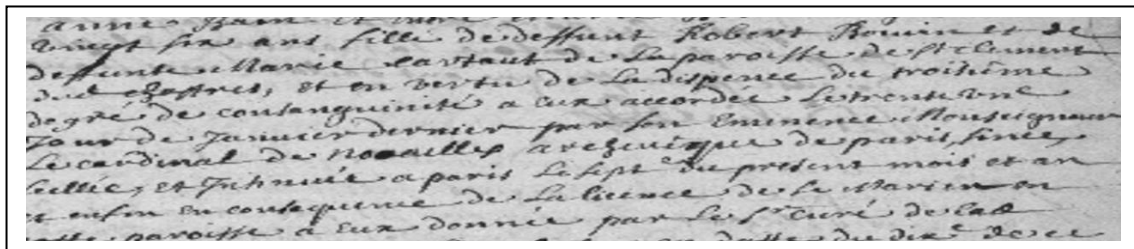 anne
vingt six ans fille de deffunt Robert Rouin et de
deffunte Marie cartaut de la paroisse de St clement
dud chastres, et en vertu de la dispence du troisiéme
degré de consanguinité a eux accordée le trente une
Jour de Janvier dernier par son Eminence Monseigneur
Le cardinal de Noailles archevesque de paris, signée,
scellée, et Insinuée a paris le sept.e du present mois et an
et enfin en consequence de la licence de se Marier en
cette paroisse a eux donnée par le Sr. Curé de lad
datte du dix.e de ce